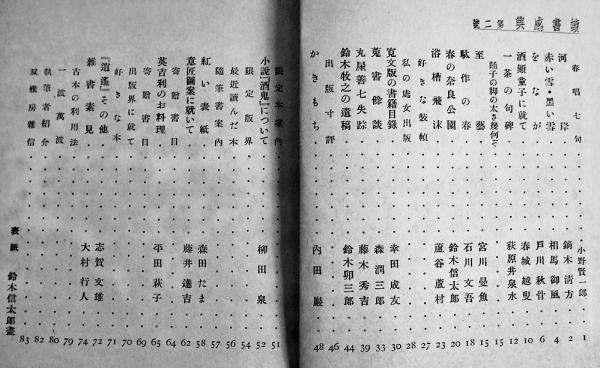 讀書感興 第二號
春唱七句 小野賢一郎 1
河岸 鏑木清方 2
赤い雪・黒い雪 相馬御風 4
をなが 戸川秋骨 6
酒顚童子に就て 春城越叟 10
一茶の句碑 荻原井泉水 12
踊子の脚の太さ幾何ぞ 15
至藝 宮川曼魚 15
駄作の春 石川文吾 18
春の奈良公園 鈴木信太郎 20
浴槽飛沫 蘆谷蘆村 23
好きな裝幀 27
私の處女出版 28
寛文版の書籍目錄 幸田成友 30
蒐書餘談 森潤三郎 33
丸屋善七失踪 藤木秀吉 39
鈴木牧之の遺稿 鈴木卯三郎 44
出版寸評 46
かきもち 內田巖 48
限定本案內 51
小說『酒鬼』について 柳田泉 52
限定版界 54
最近讀んだ本 56
隨筆書案內 57
紅い表紙 森田たま 58
意匠圖案に就いて 藤井達吉 62
寄贈書目 64
英吉利のお料理 平田萩子 65
寄贈書目 69
出版界に就て 70
好きな本 71
『逍遙』その他 志賀文雄 72
雜書素見 大村行人 74
古本の利用法 79
一波萬波 80
執筆者紹介 82
双雅房雜信 83
表紙 鈴木信太郎畫